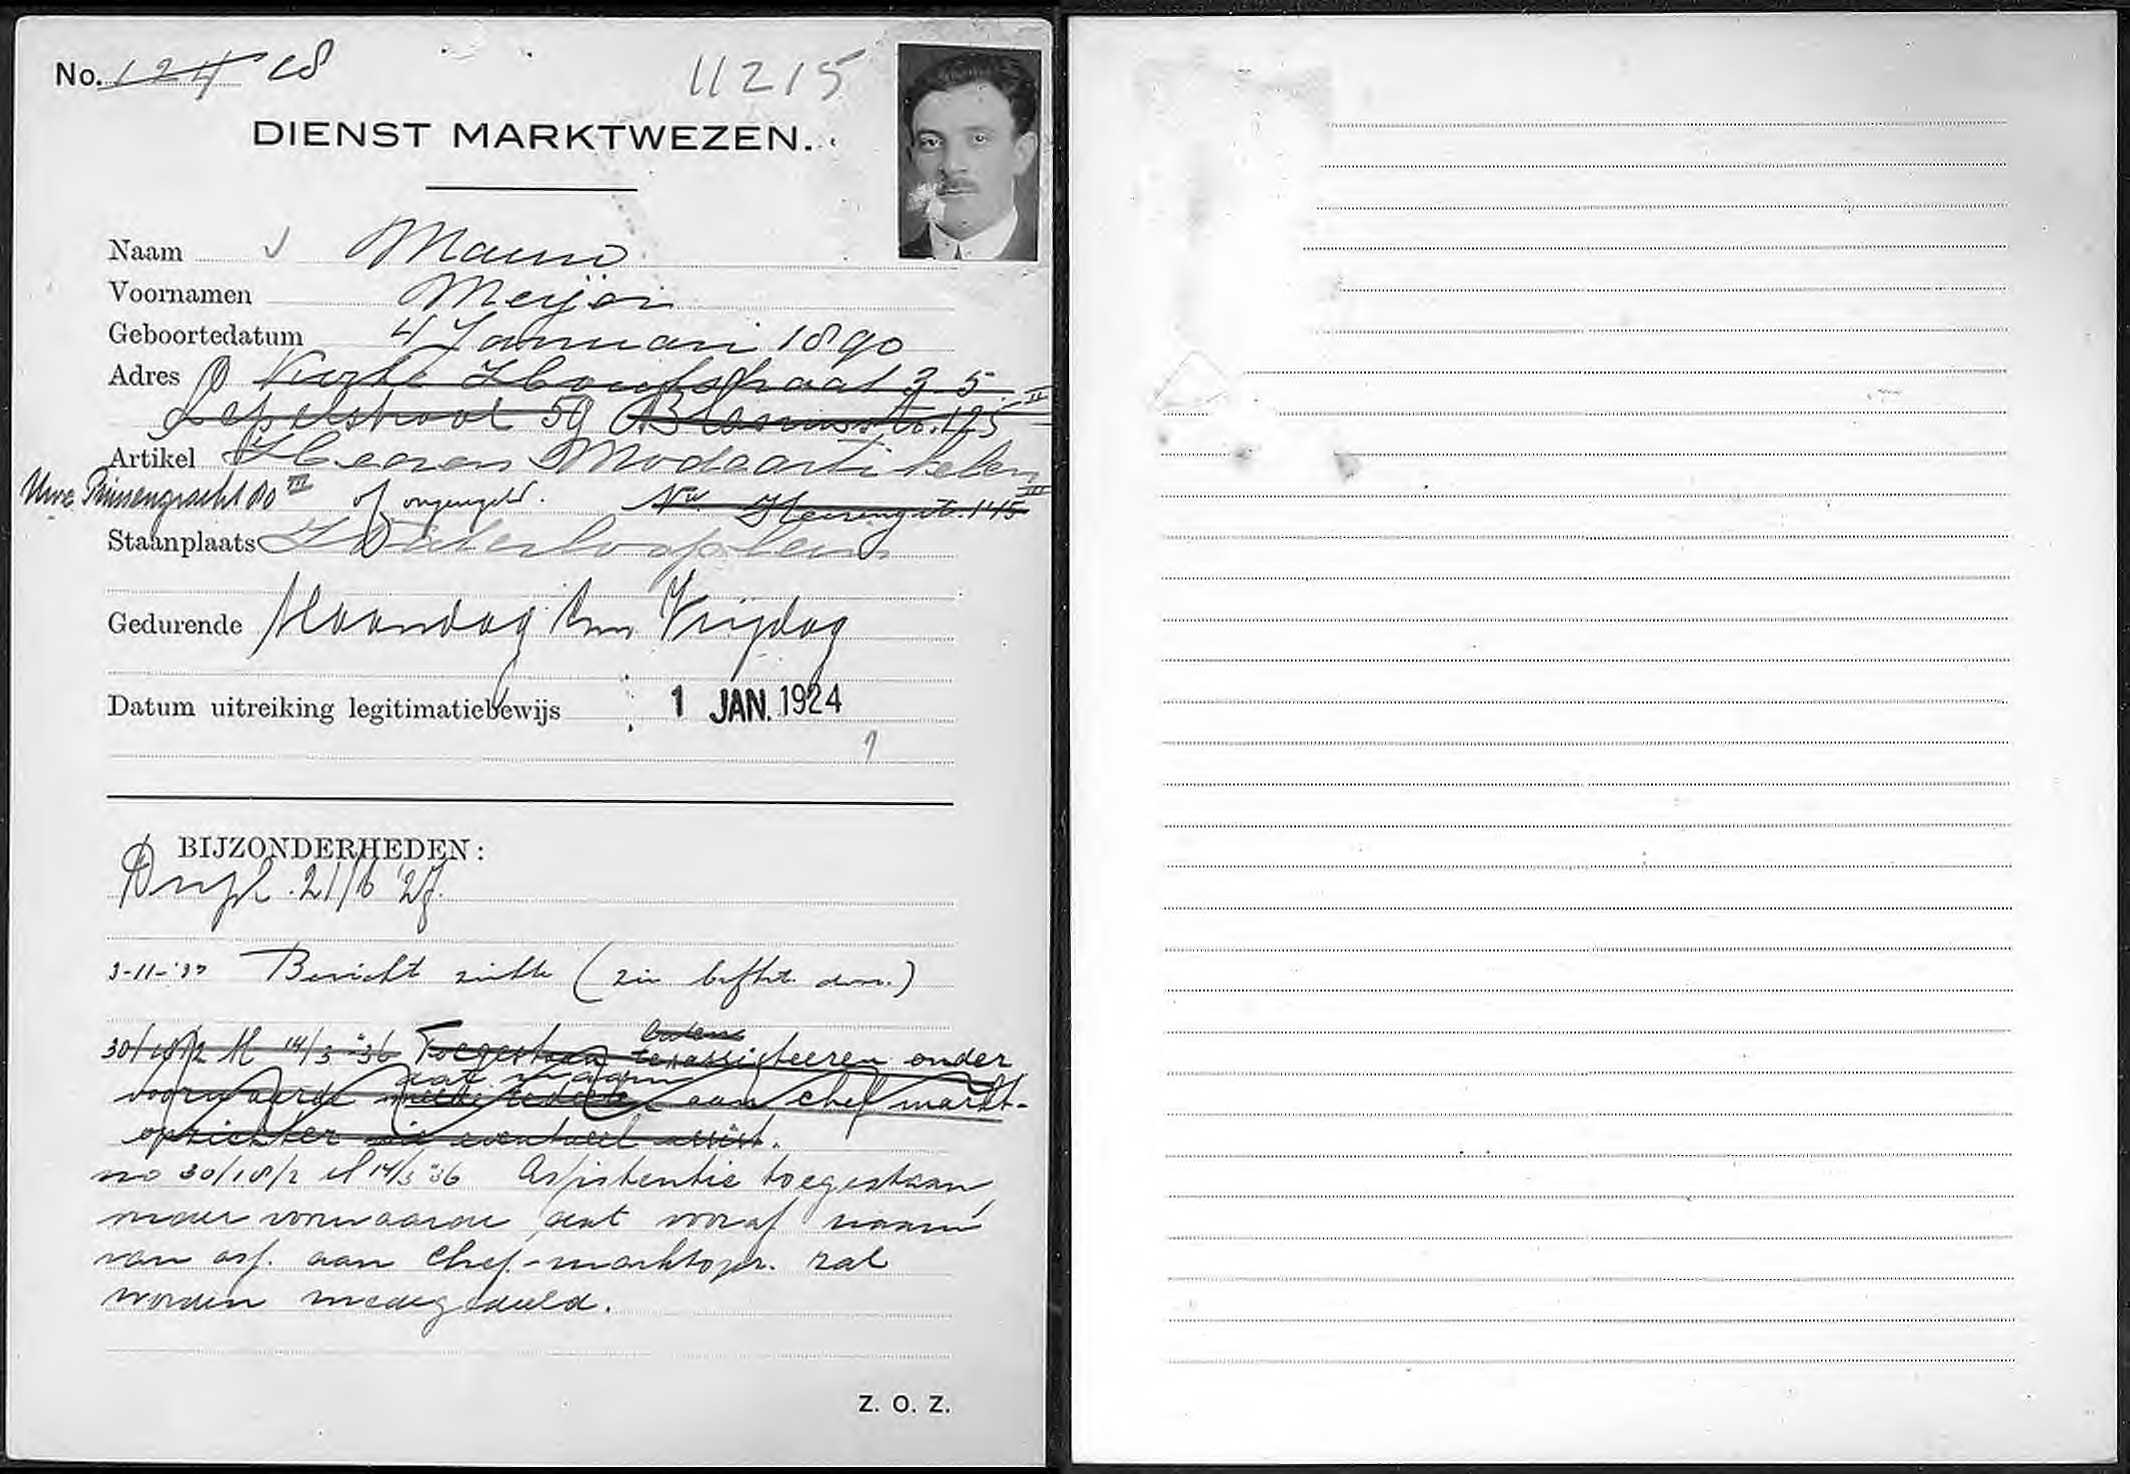 No. 124 18
11215
DIENST MARKTWEZEN.
Naam Mauw
Voornamen Meijer
Geboortedatum 4 Januari 1890
Adres Korte Houtstraat 35 II
Lepelstraat 59 Blasiusstr. 125
Artikel Heeren Modeartikelen
Nwe Prinsengracht 80 III of ongeregeld. Nw. Heerengr. 115 II
Staanplaats Waterlooplein
Gedurende Maandag t/m Vrijdag
Datum uitreiking legitimatiebewijs 1 JAN. 1924
BIJZONDERHEDEN:
Dupl. 21/6 '27.
3-11-'33 Bericht (zie dom.)
30/18/2 M 14/3 '36 Toegestaan te assisteeren onder
dat naam
voorwaarde aan chef markt-
opzichter eventueel assist.
no 30/18/2 M 14/3 '36 Assistentie toegestaan,
onder voorwaarde dat vooraf naam
van ass. aan Chef-marktopz. zal
worden medegedeeld.
Z. O. Z.